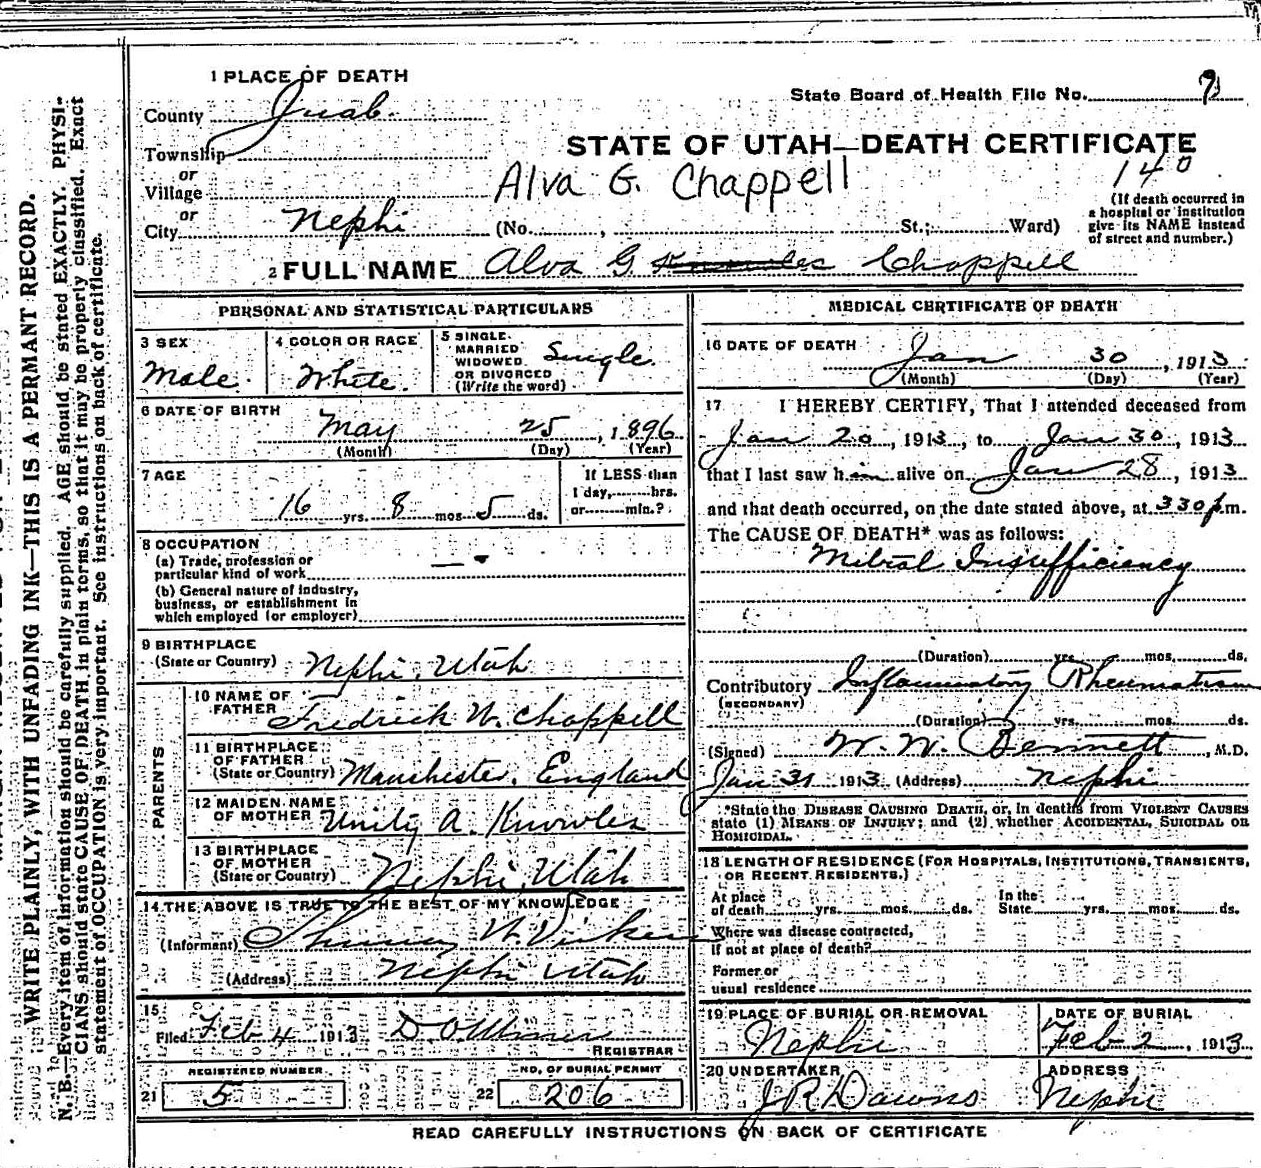 1 PLACE OF DEATH
County Juab.
Township
or
Village
or
City Nephi
State Board of Health File No. 7
STATE OF UTAH—DEATH CERTIFICATE
140
Alva G. Chappell
(No. , St.; Ward)
(If death occurred in
a hospital or institution
give its NAME instead
of street and number.)
2 FULL NAME Alva G Knowles Chappell
PERSONAL AND STATISTICAL PARTICULARS
3 SEX
Male.
4 COLOR OR RACE
White.
5 SINGLE
MARRIED
WIDOWED
OR DIVORCED
(Write the word)
Single.
6 DATE OF BIRTH
May 25, 1896
(Month) (Day) (Year)
7 AGE
16 yrs. 8 mos 5 ds.
If LESS than
1 day, hrs.
or min.?
8 OCCUPATION
(a) Trade, profession or
particular kind of work
(b) General nature of industry,
business, or establishment in
which employed (or employer)
9 BIRTHPLACE
(State or Country) Nephi, Utah
PARENTS
10 NAME OF
FATHER Fredrick W. Chappell
11 BIRTHPLACE
OF FATHER
(State or Country) Manchester, England
12 MAIDEN NAME
OF MOTHER Unity A. Knowles
13 BIRTHPLACE
OF MOTHER
(State or Country) Nephi, Utah
14 THE ABOVE IS TRUE TO THE BEST OF MY KNOWLEDGE
(Informant)
(Address) Nephi Utah
15
Filed Feb 4 1913 D. O. Miner
REGISTRAR
REGISTERED NUMBER
21 5
NO. OF BURIAL PERMIT
22 206
MEDICAL CERTIFICATE OF DEATH
16 DATE OF DEATH
Jan 30, 1913
(Month) (Day) (Year)
17 I HEREBY CERTIFY, That I attended deceased from
Jan 20, 1913, to Jan 30, 1913
that I last saw him alive on Jan 28, 1913
and that death occurred, on the date stated above, at 330 p.m.
The CAUSE OF DEATH* was as follows:
Mitral Insufficiency
(Duration) yrs. mos. ds.
Contributory Inflammatory Rheumatism
(SECONDARY)
(Duration) yrs. mos. ds.
(Signed) W. W. Bennett, M.D.
Jan 31 1913 (Address) Nephi
*State the DISEASE CAUSING DEATH, or, in deaths from VIOLENT CAUSES
state (1) MEANS OF INJURY; and (2) whether ACCIDENTAL, SUICIDAL OR
HOMICIDAL.
18 LENGTH OF RESIDENCE (FOR HOSPITALS, INSTITUTIONS, TRANSIENTS,
OR RECENT RESIDENTS.)
At place
of death yrs. mos. ds.
In the
State yrs. mos. ds.
Where was disease contracted,
if not at place of death?
Former or
usual residence
19 PLACE OF BURIAL OR REMOVAL
Nephi
DATE OF BURIAL
Feb 2, 1913
20 UNDERTAKER
J R Dawns
ADDRESS
Nephi
READ CAREFULLY INSTRUCTIONS ON BACK OF CERTIFICATE
WRITE PLAINLY, WITH UNFADING INK—THIS IS A PERMANT RECORD.
N. B.—Every item of information should be carefully supplied. AGE should be stated EXACTLY. PHYSI-
CIANS should state CAUSE OF DEATH in plain terms, so that it may be properly classified. Exact
statement of OCCUPATION is very important. See instructions on back of certificate.